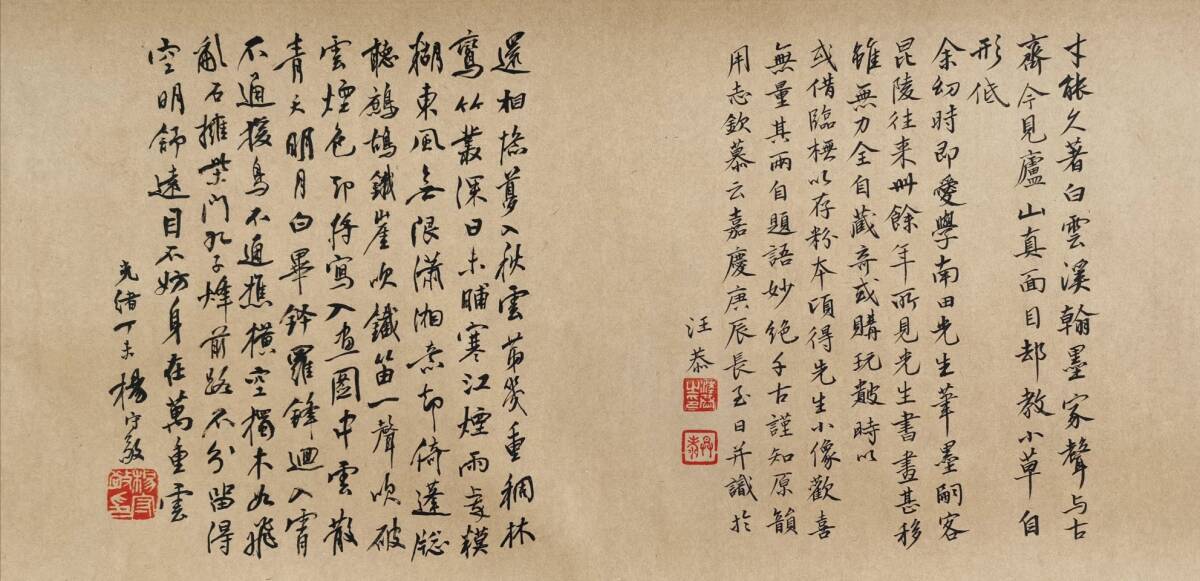 才能久著白雲溪翰墨家聲与古
齋今見廬山真面目却教小草自
形低
余幼時即愛學南田先生筆墨嗣客
昆陵往来卅餘年所見先生書畫甚移
雖無力全自藏弆或購玩皷時以
或借臨橅以存粉本頃得先生小像歡喜
無量其兩自題語妙絕千古謹知原韻
用志欽慕云嘉慶庚辰長至日并識於
汪恭
還相擔蓴入秋雲苐幾重稠林
鸞竹叢深日未晡寒江煙雨䖏糢
糊東風無限瀟湘意却倚蓬牕
聽鷓鴣鐵崖吹鐵笛一聲吹破
雲煙色即將寫入畫圖中雲散
青天明月白畢鉢羅鋒迴入霄
不通猨鳥不通樵橫空獨木如飛
亂石擁柴門孔子烽前路不分留得
空明飾遠目不妨身在萬重雲
光緒丁未楊守敬